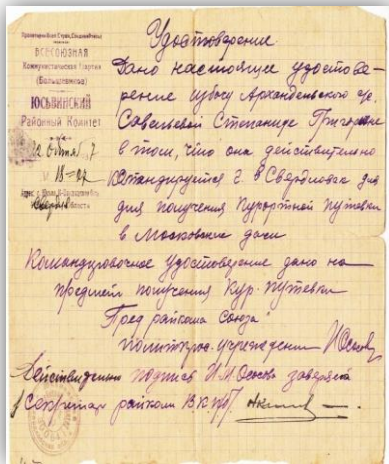 Пролетарии всех стран, соединяйтесь!
ВСЕСОЮЗНАЯ
Коммунистическая Партия
(Большевиков)
ЮСЬВИНСКИЙ
Районный Комитет
Удостоверение
Дано настоящее удостове-
рение избачу Архангельского
Савельевой Степаниде Григорьевне
в том, что она действительно
командируется г. в Свердловск для
для получения курортной путевки
в Московские дачи
Командировочное удостоверение дано на
предмет получения кур. путевки
Пред райкома Союза
политпрос. учреждений
Действительно подпись И.М. заверяю
Секретарь райкома ВКП/б/